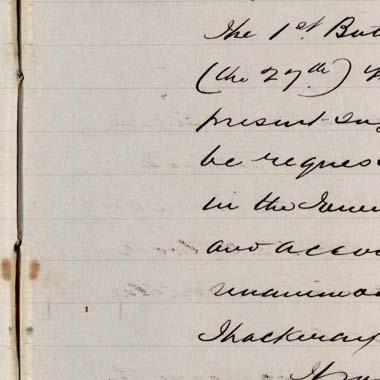 The 1st But
(the 27th)
present in
be reques
in the Gene
and accou
unanimou
Thackeray